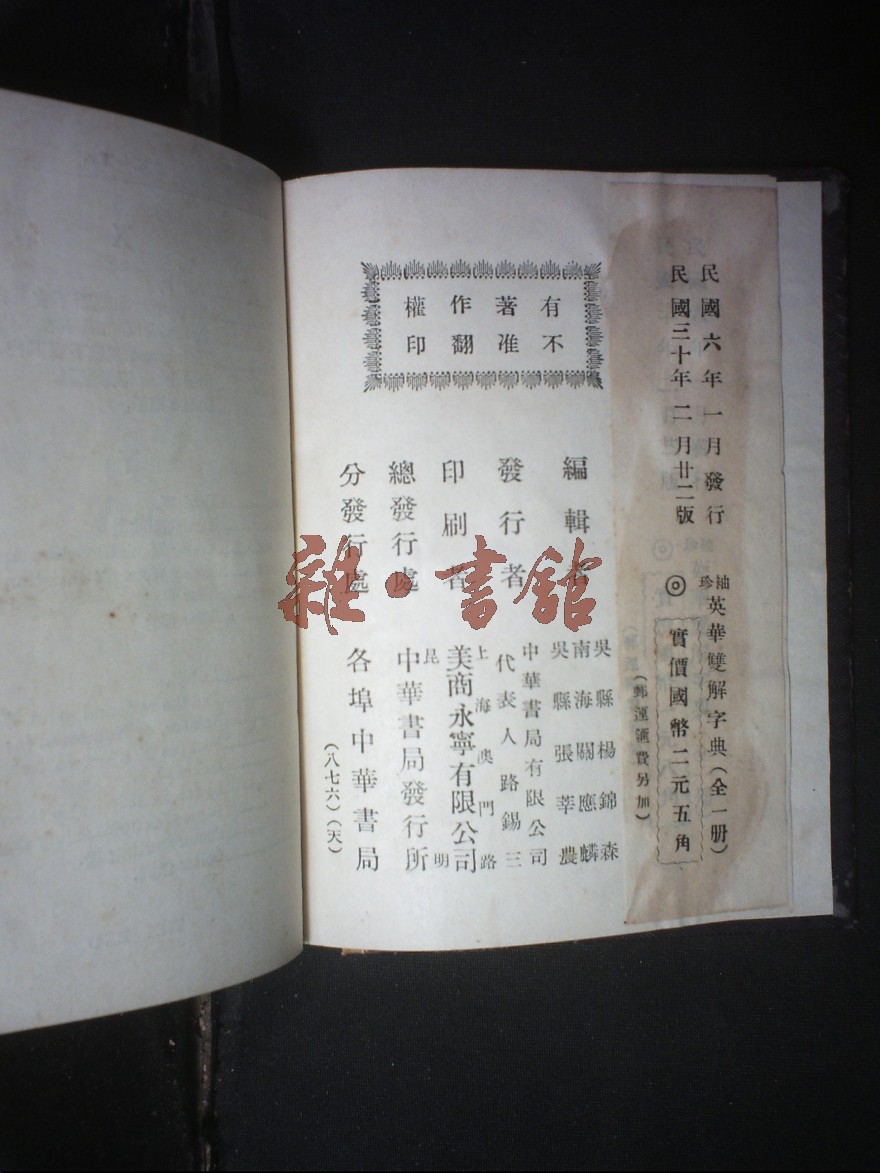 民國六年一月發行
民國三十年二月廿二版
袖珍英華雙解字典(全一册)
◎實價國幣二元五角
(郵運匯費另加)
有不著准作翻權印
編輯者
吳縣楊錦森
南海關應麟
吳縣張莘農
發行者
中華書局有限公司
代表人路錫三
印刷者
上海澳門路
美商永寧有限公司
總發行處
昆明
中華書局發行所
分發行處
各埠中華書局
(八七六)(天)
雜·書館